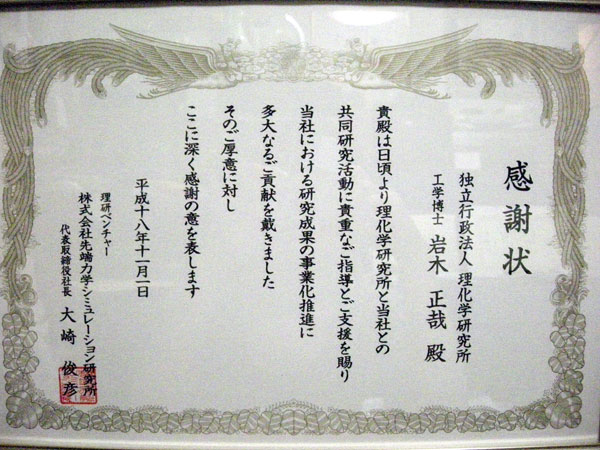 感謝状
独立行政法人 理化学研究所
工学博士 岩木 正哉 殿
貴殿は日頃より理化学研究所と当社との
共同研究活動に貴重なご指導とご支援を賜り
当社における研究成果の事業化推進に
多大なるご貢献を戴きました
そのご厚意に対し
ここに深く感謝の意を表します
平成十八年十一月一日
理研ベンチャー
株式会社先端力学シミュレーション研究所
代表取締役社長 大崎 俊彦